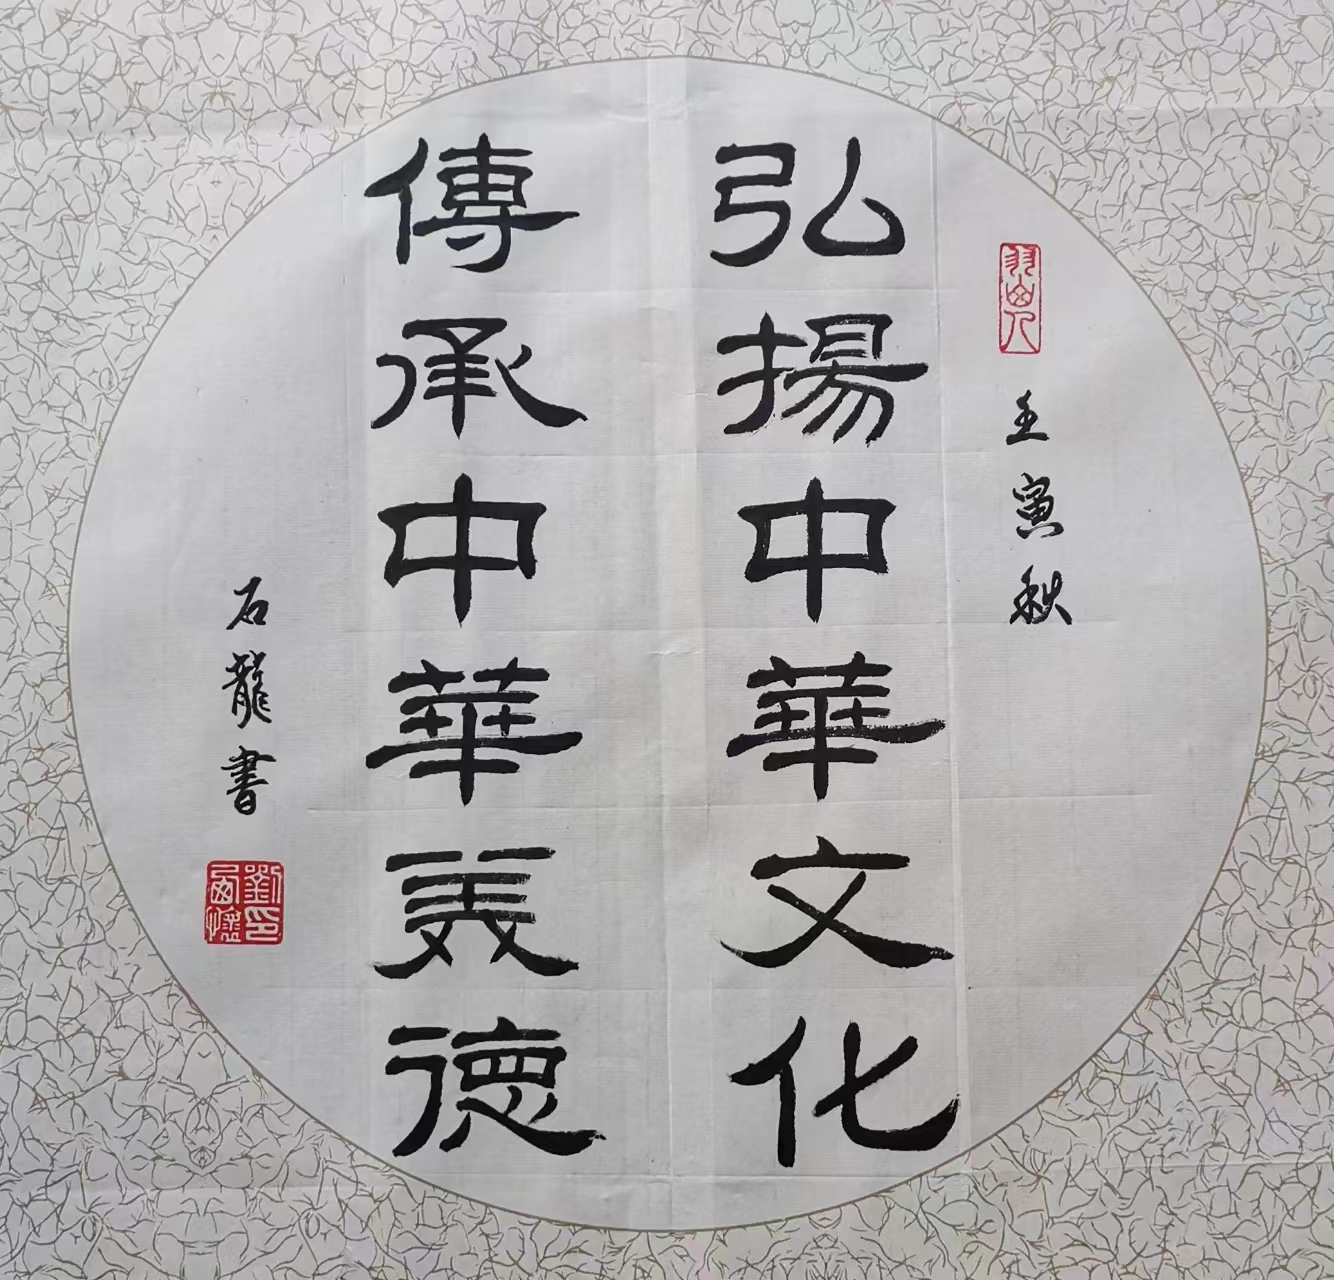 壬寅秋
弘揚中華文化
傳承中華美德
石龍書